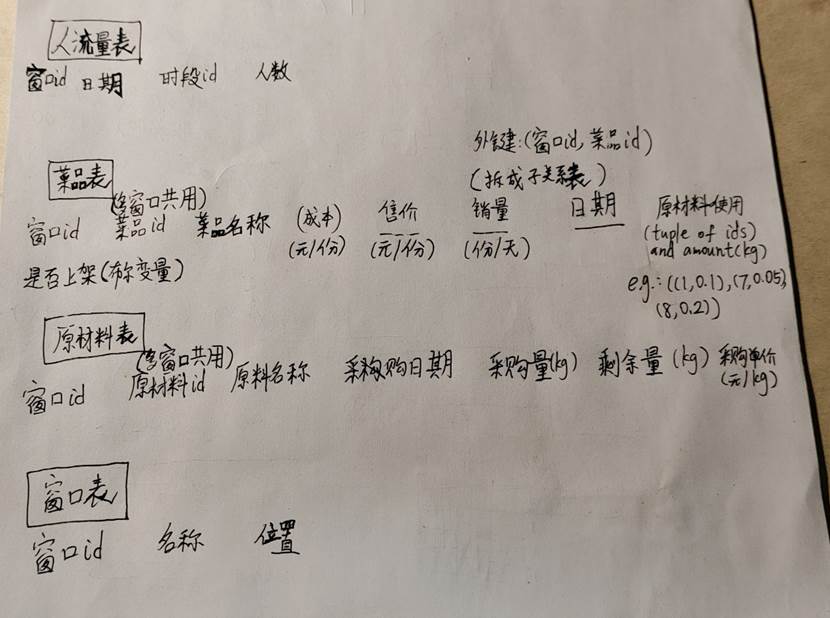 人流量表
窗口id 日期 时段id 人数
外键:(窗口id,菜品id)
(拆成子关系表)
菜品表
(各窗口共用)
窗口id 菜品id 菜品名称 (成本) 售价 销量 日期 原材料使用
(元/份) (元/份) (份/天) (tuple of ids)
and amount(kg)
是否上架(布尔变量)
e.g.:((1,0.1),(7,0.05),
(8,0.2))
原材料表
(各窗口共用)
窗口id 原材料id 原料名称 采购日期 采购量(kg) 剩余量(kg) 采购单价
(元/kg)
窗口表
窗口id 名称 位置